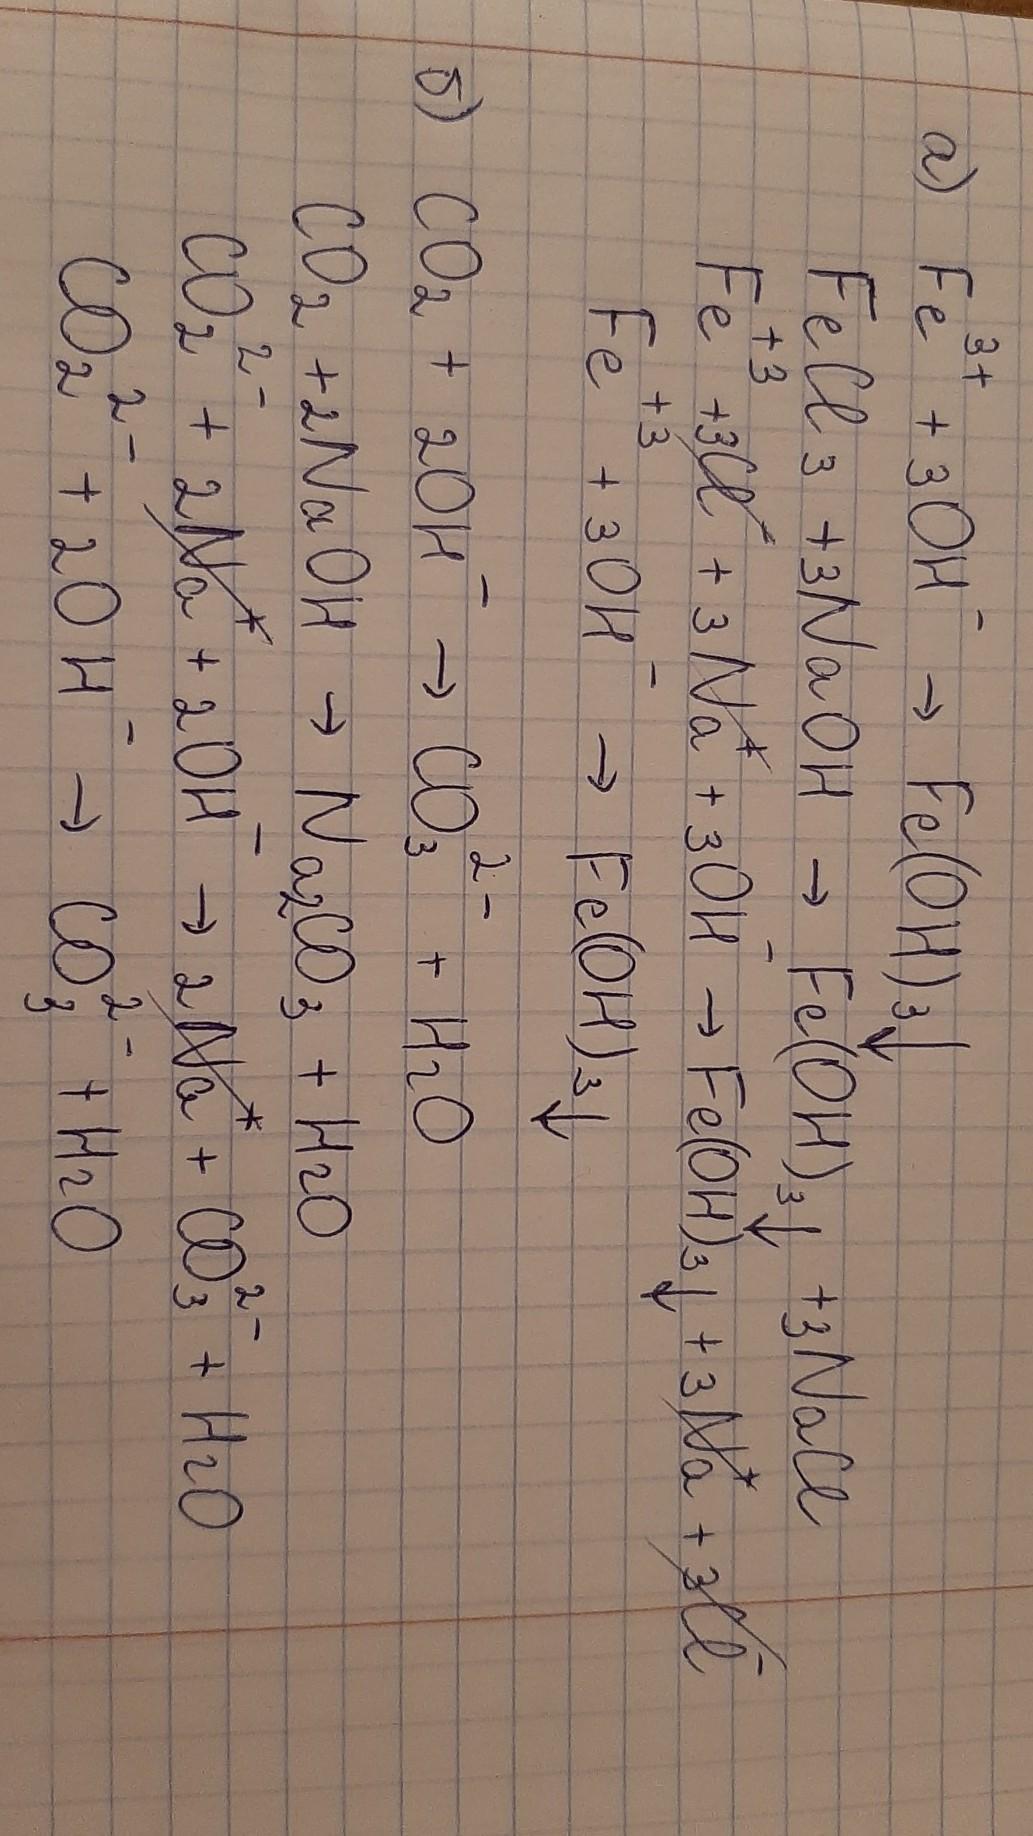 а) Fe³⁺ + 3OH⁻ → Fe(OH)₃↓
FeCl₃ + 3NaOH → Fe(OH)₃↓ + 3NaCl
Fe⁺³ + 3Cl⁻ + 3Na⁺ + 3OH⁻ → Fe(OH)₃↓ + 3Na⁺ + 3Cl⁻
Fe⁺³ + 3OH⁻ → Fe(OH)₃↓
б) CO₂ + 2OH⁻ → CO₃²⁻ + H₂O
CO₂ + 2NaOH → Na₂CO₃ + H₂O
CO₂²⁻ + 2Na⁺ + 2OH⁻ → 2Na⁺ + CO₃²⁻ + H₂O
CO₂²⁻ + 2OH⁻ → CO₃²⁻ + H₂O